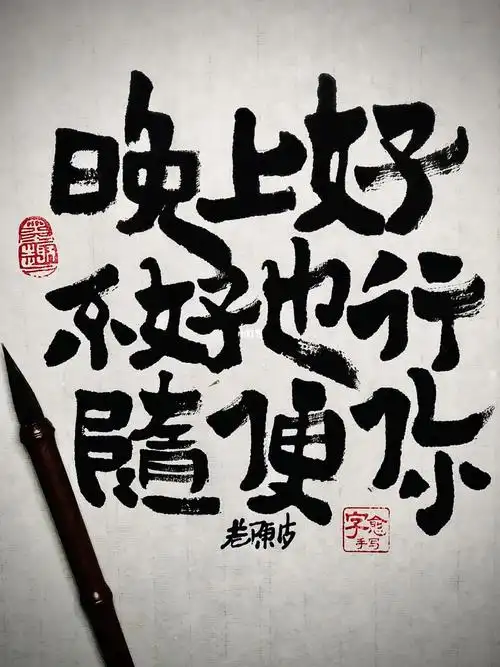 晚上好
不好也行
隨便你
老陳古
字愈
手写